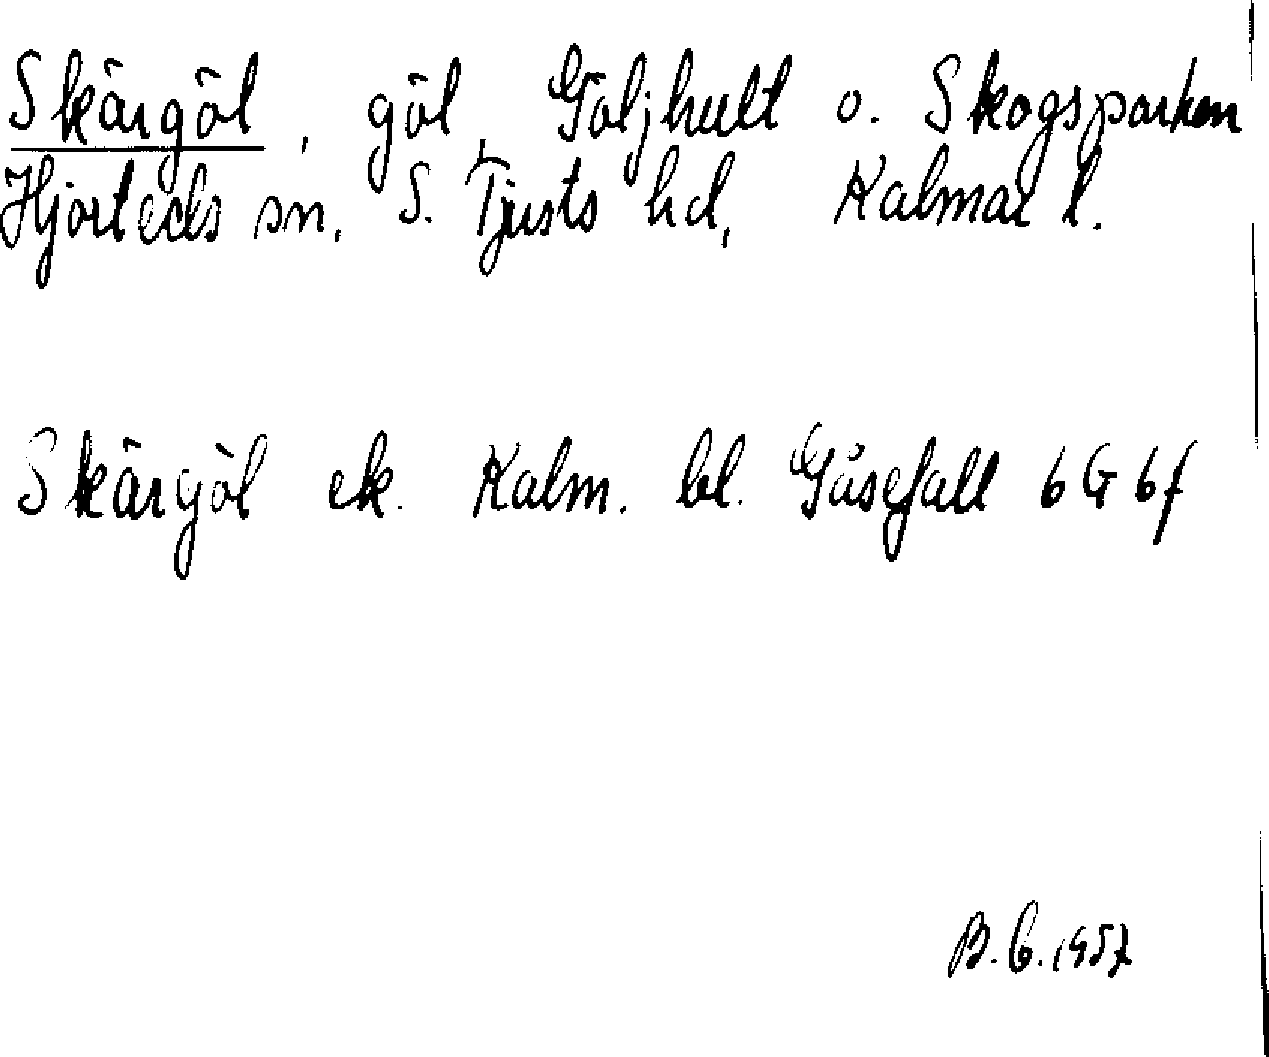 Skärgöl, göl, Göljhult o. Skogsparken
Hjorteds sn, S. Tjusts hd, Kalmar l.
Skärgöl ek. Kalm. bl. Gåsefall 6G 6f
B.C. 1957